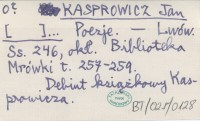 0² KASPROWICZ Jan
[ ]... Poezje. — Lwów.
Ss. 246, okł. Biblioteka
Mrówki t. 257-259.
Debiut książkowy Kas-
prowicza.
BJ/001/0128